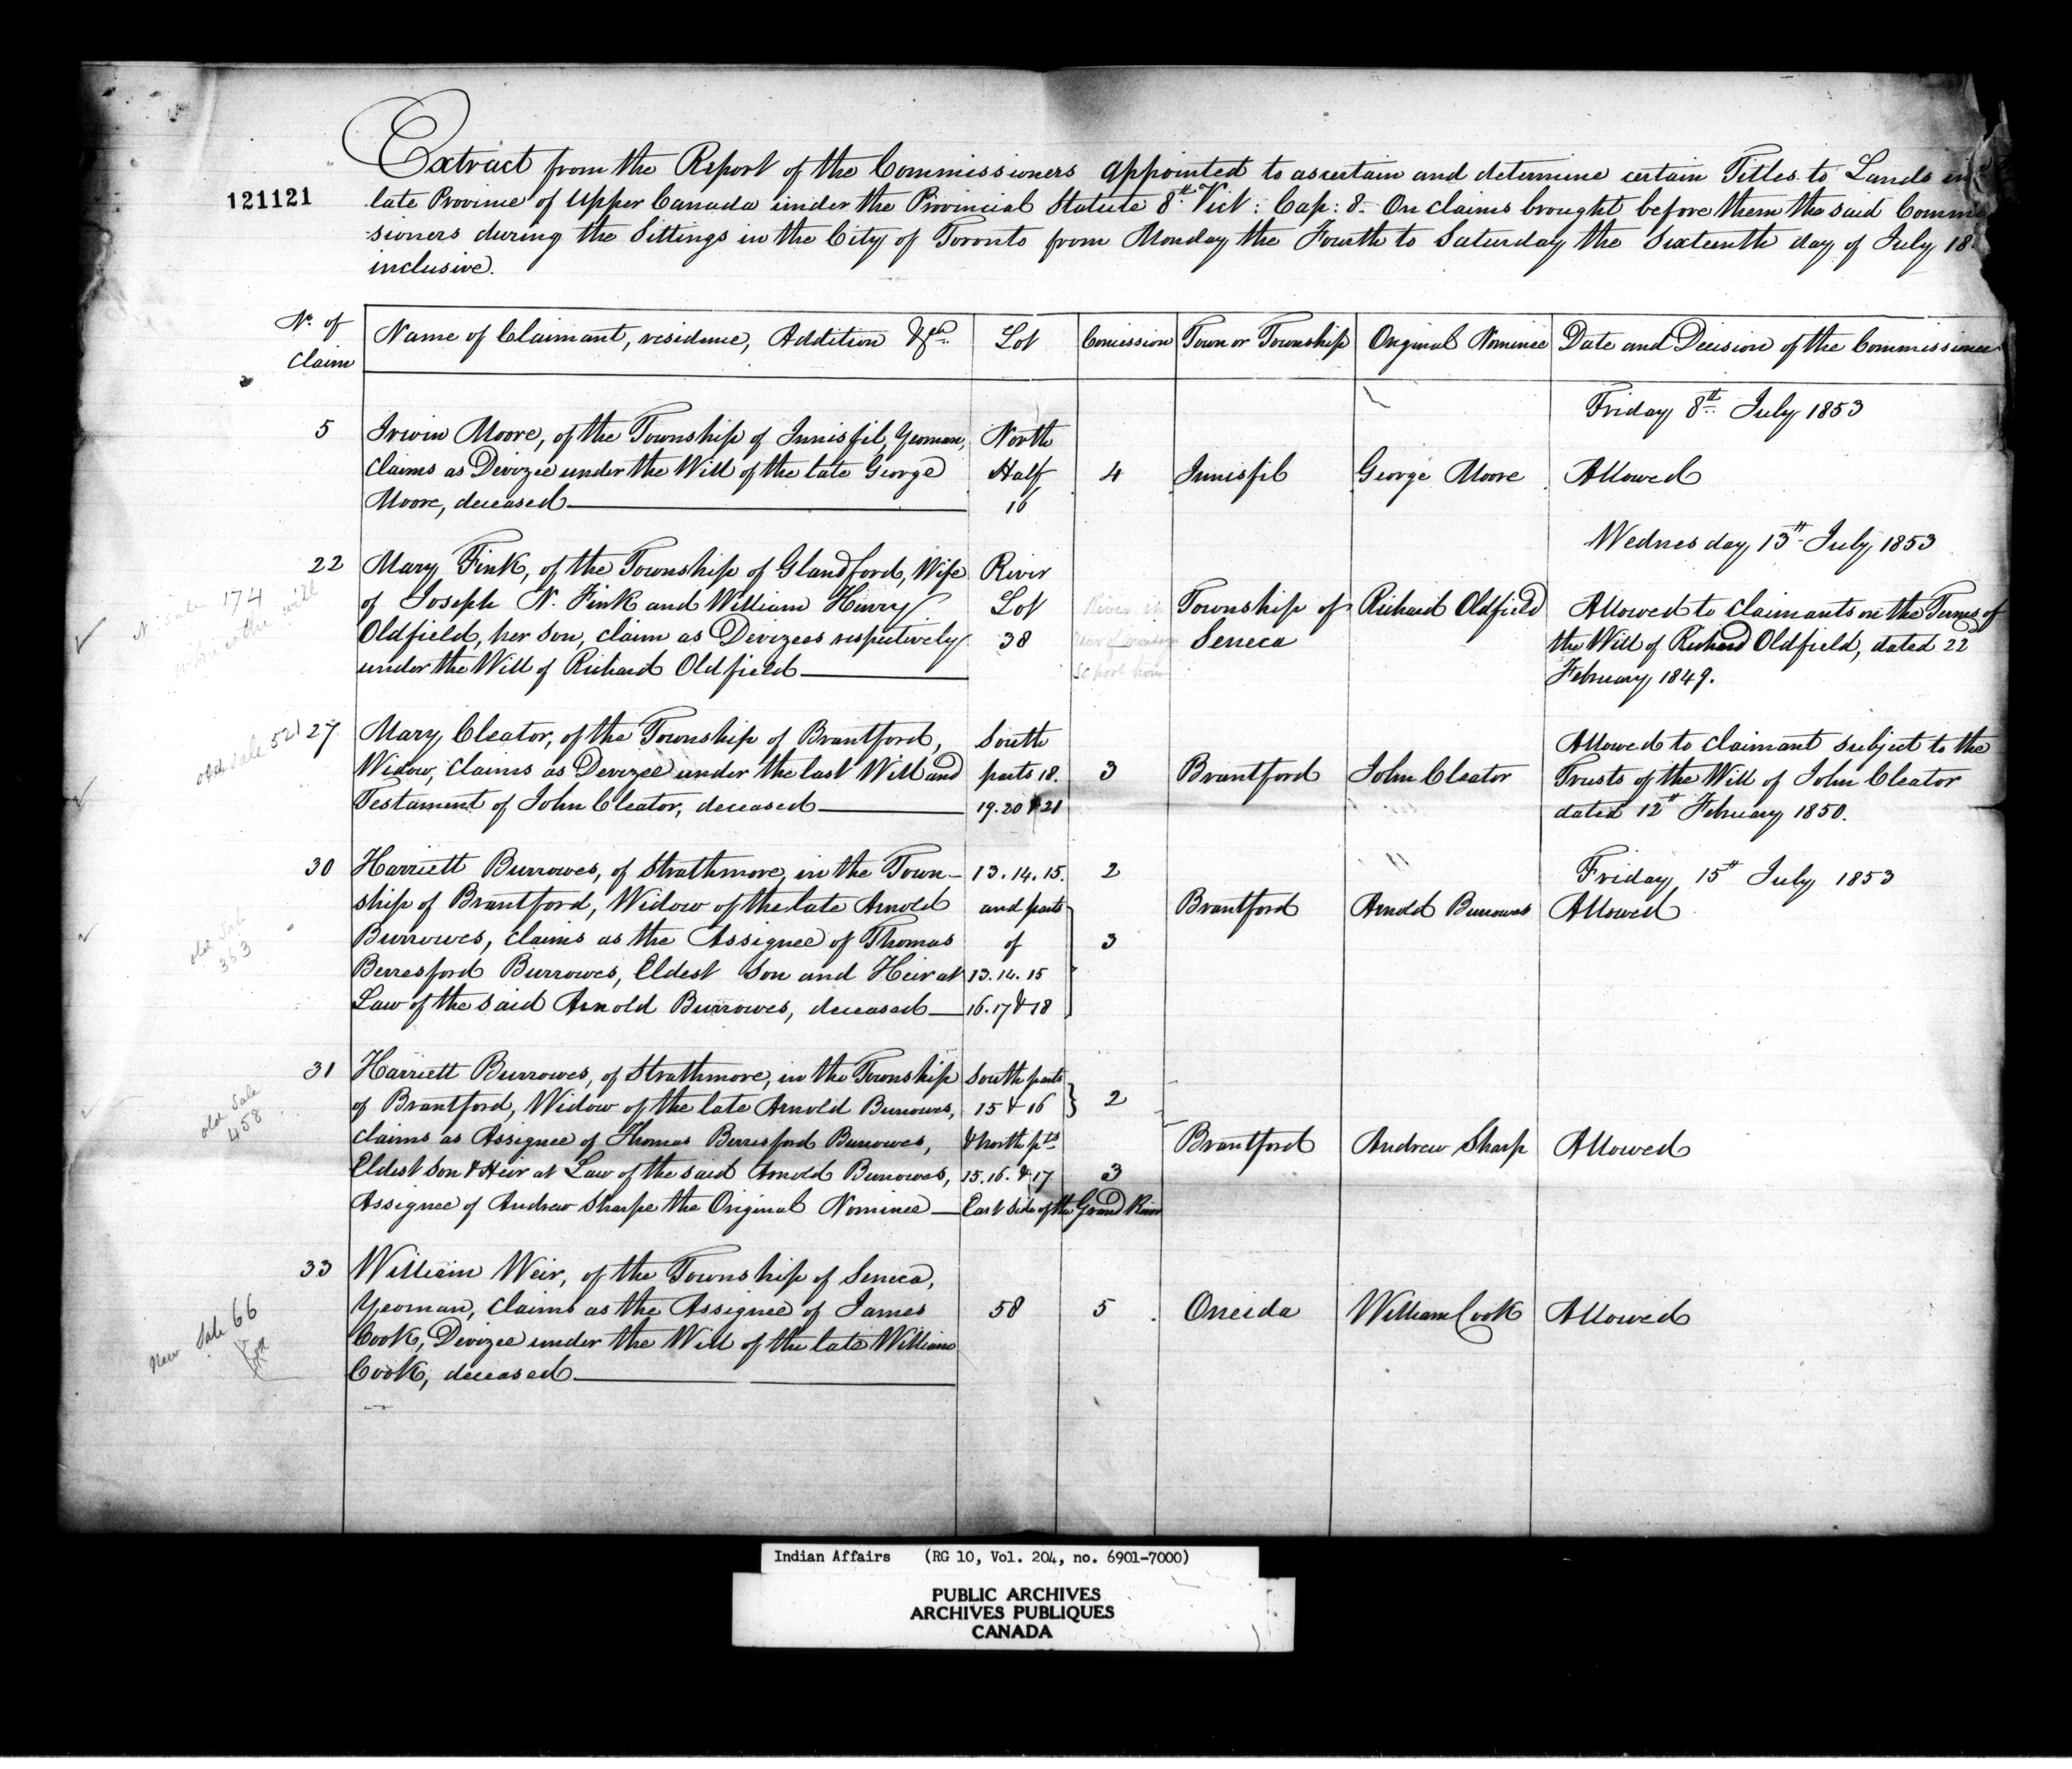 Extract from the Report of the Commissioners appointed to ascertain and determine certain Titles to Lands in
121121
late Province of Upper Canada under the Provincial Statute 8th Vict: Cap: 8. On claims brought before them the said Commis
-sioners during the Sittings in the City of Toronto from Monday the Fourth to Saturday the Sixteenth day of July 18
inclusive.
No. of Claim | Name of Claimant, residence, Addition &ca. | Lot | Concession | Town or Township | Original Nominee | Date and Decision of the Commissioners
Friday 8th July 1853
5 Irwin Moore, of the Township of Innisfil, Yeoman, North
claims as Devizee under the Will of the late George Half 4 Innisfil George Moore Allowed
Moore, deceased 16
Wednesday 13th July 1853
22 Mary Fink, of the Township of Glandford, Wife River
174 of Joseph N. Fink and William Henry Lot River Township of Richard Oldfield Allowed to claimants on the Terms of
Oldfield, her son, claim as Devizees respectively 38 Seneca the Will of Richard Oldfield, dated 22d
under the Will of Richard Oldfield School February 1849.
old sale 521 27 Mary Cleator, of the Township of Brantford, South Allowed to claimant subject to the
Widow, claims as Devizee under the last Will and parts 18. 3 Brantford John Cleator Trusts of the Will of John Cleator
Testament of John Cleator, deceased 19. 20 & 21 dated 12th February 1850.
30 Harriett Burrowes, of Strathmore, in the Town- 13. 14. 15. 2 Friday 15th July 1853
ship of Brantford, Widow of the late Arnold and parts Brantford Arnold Burrowes Allowed
old Sale 363 Burrowes, claims as the Assignee of Thomas of 3
Berresford Burrowes, Eldest Son and Heir at 13. 14. 15
Law of the said Arnold Burrowes, deceased 16. 17 & 18
31 Harriett Burrowes, of Strathmore, in the Township South parts
old Sale 458 of Brantford, Widow of the late Arnold Burrowes, 15 & 16 2
claims as Assignee of Thomas Berresford Burrowes, & North pts. Brantford Andrew Sharp Allowed
Eldest Son & Heir at Law of the said Arnold Burrowes, 15. 16. & 17 3
Assignee of Andrew Sharpe the Original Nominee East Side of the Grand River
33 William Weir, of the Township of Seneca,
New Sale 66 Yeoman, claims as the Assignee of James 58 5 Oneida William Cook Allowed
Cook, Devizee under the Will of the late William
Cook, deceased
Indian Affairs (RG 10, Vol. 204, no. 6901-7000)
PUBLIC ARCHIVES
ARCHIVES PUBLIQUES
CANADA